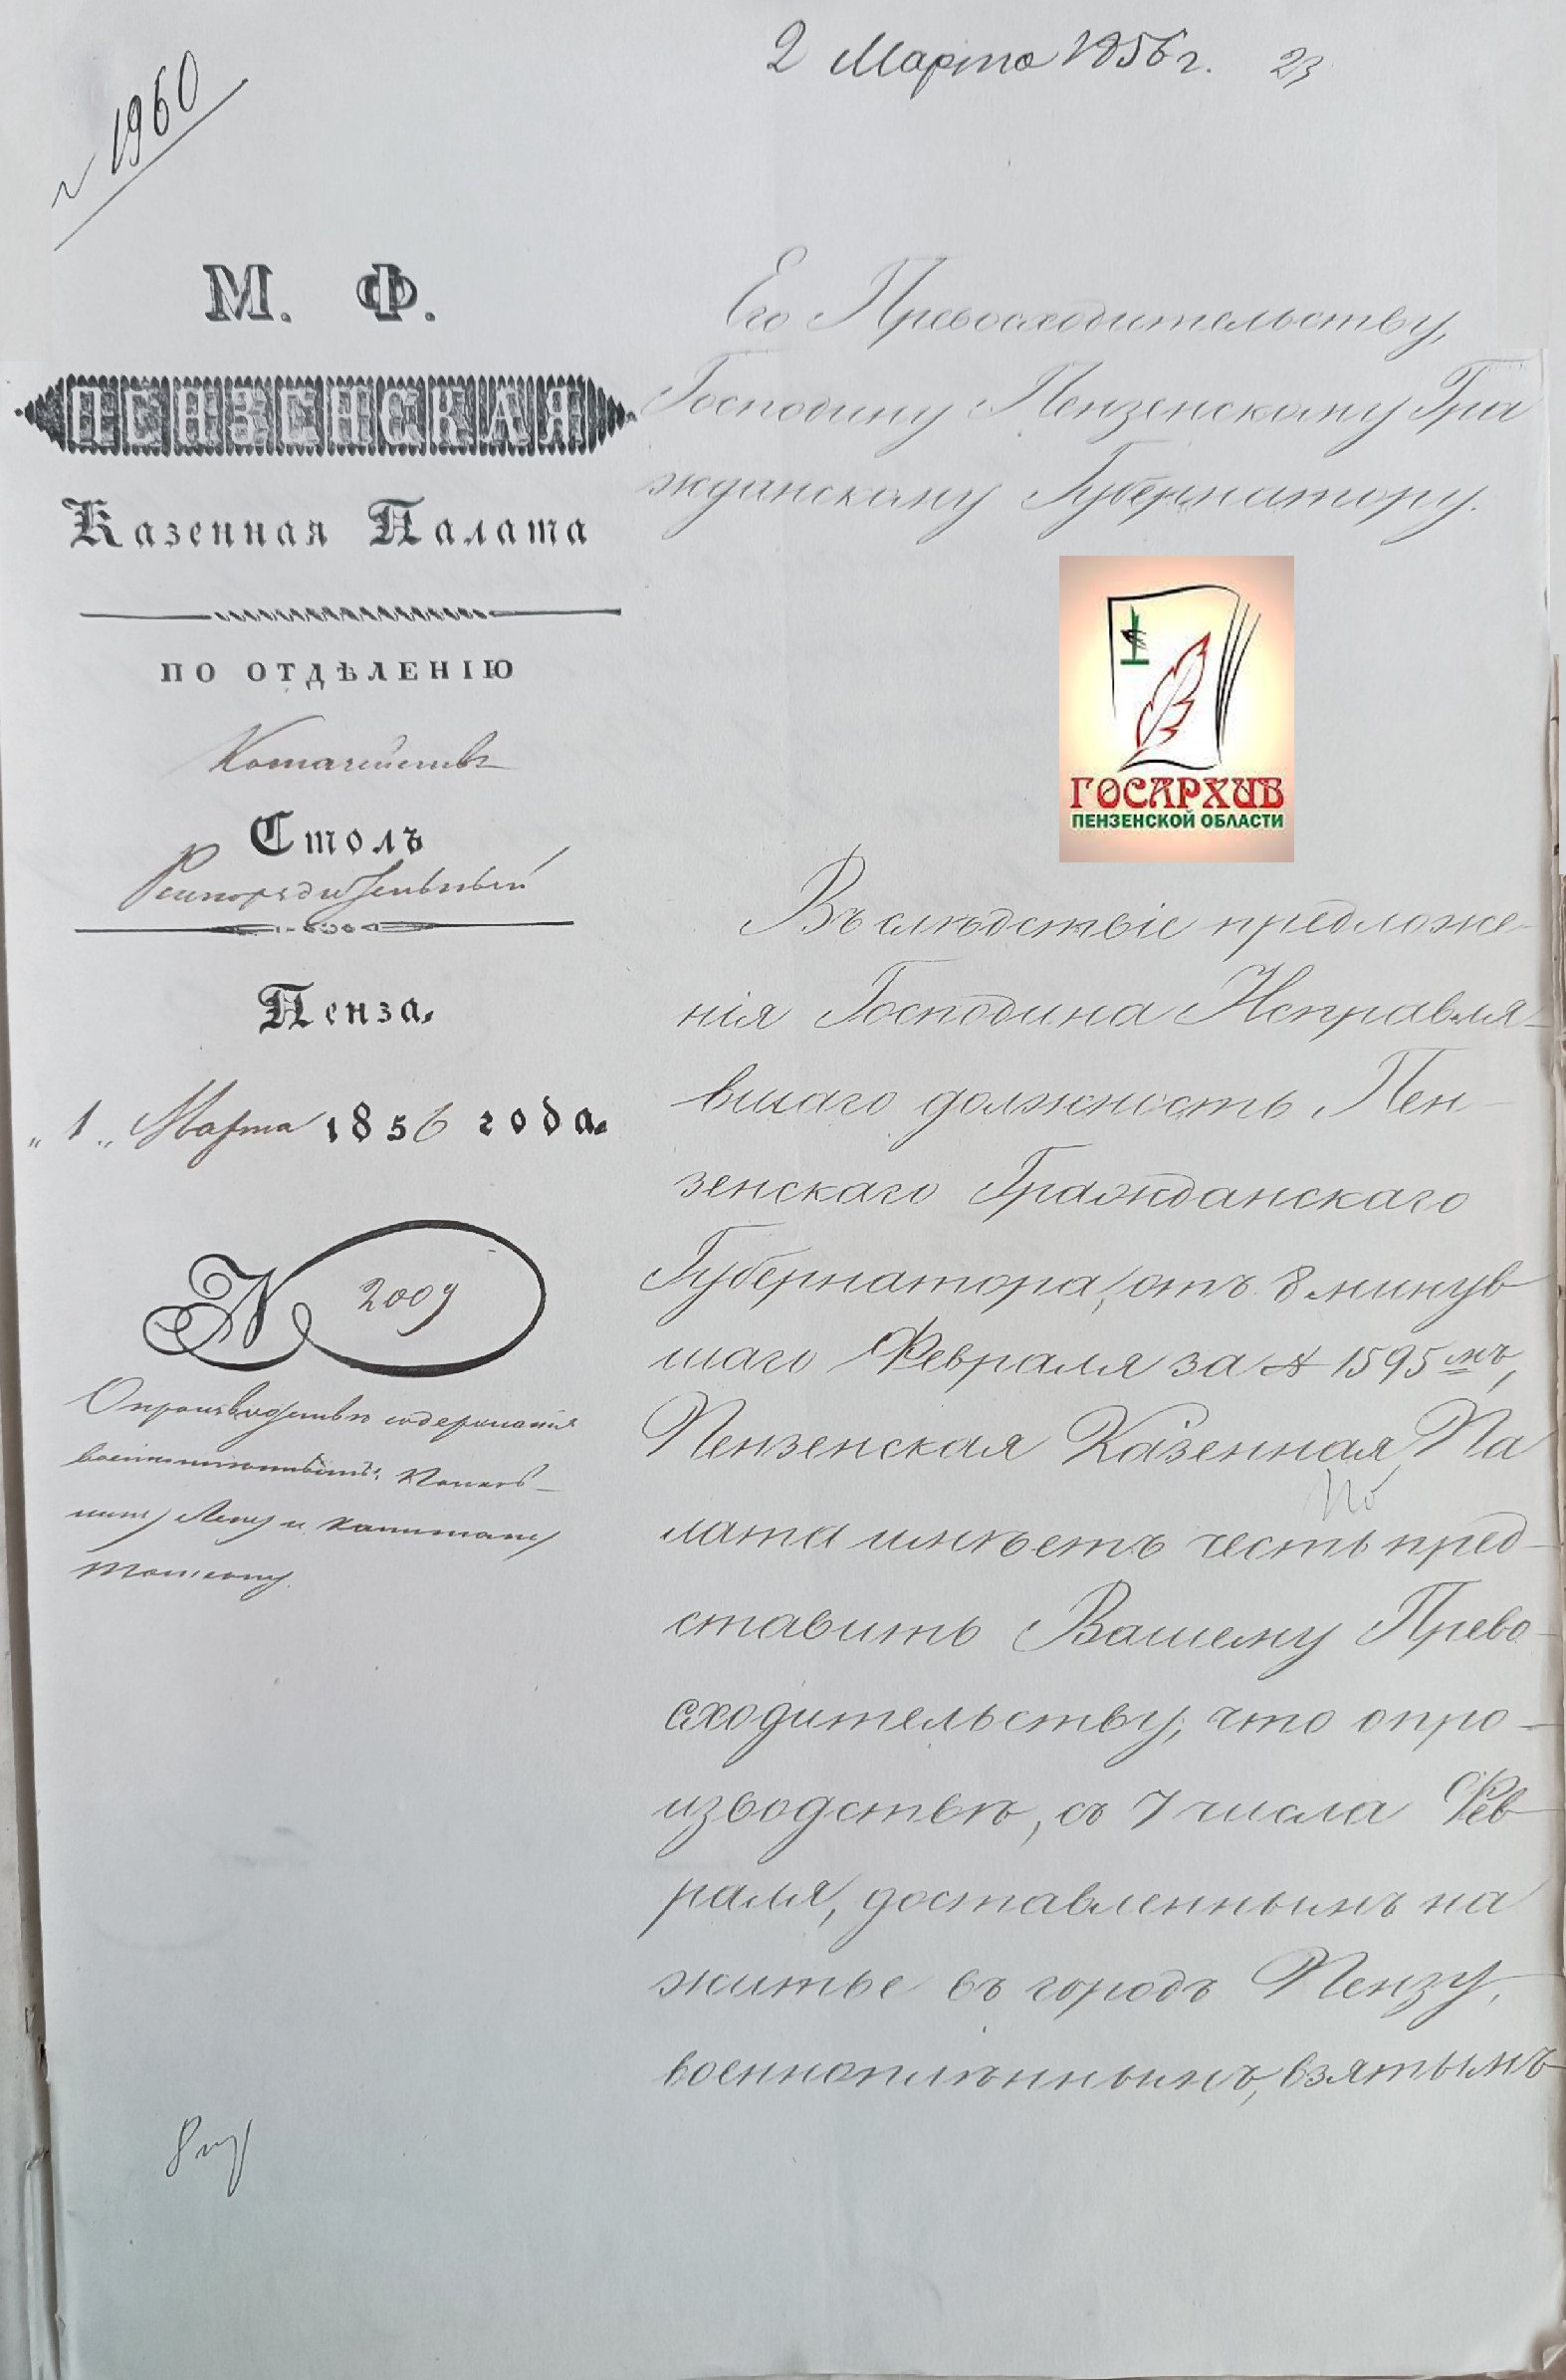 2 Марта 1856 г. 23
№ 1960
М. Ф.
ПЕНЗЕНСКАЯ
Казенная Палата
ПО ОТДѢЛЕНІЮ
Казначействъ
Столъ
Распорядительный
Пенза.
"1" Марта 1856 года.
№ 2009
О производствѣ содержанія
военноплѣннымъ: Полков-
нику Леку и Капитану
Томсону.
Его Превосходительству,
Господину Пензенскому Гра
жданскому Губернатору.
ГОСАРХИВ
ПЕНЗЕНСКОЙ ОБЛАСТИ
Въ слѣдствіе предложе-
нія Господина Исправля-
вшаго должность Пен-
зенскаго Гражданскаго
Губернатора, отъ 8 минув
шаго Февраля за № 1595мъ,
Пензенская Казенная Па
лата имѣетъ честь пред-
ставить Вашему Прево-
сходительству, что о про-
изводствѣ, съ 7 числа Фев
раля, доставленнымъ на
житье въ городъ Пензу,
военноплѣннымъ, взятымъ